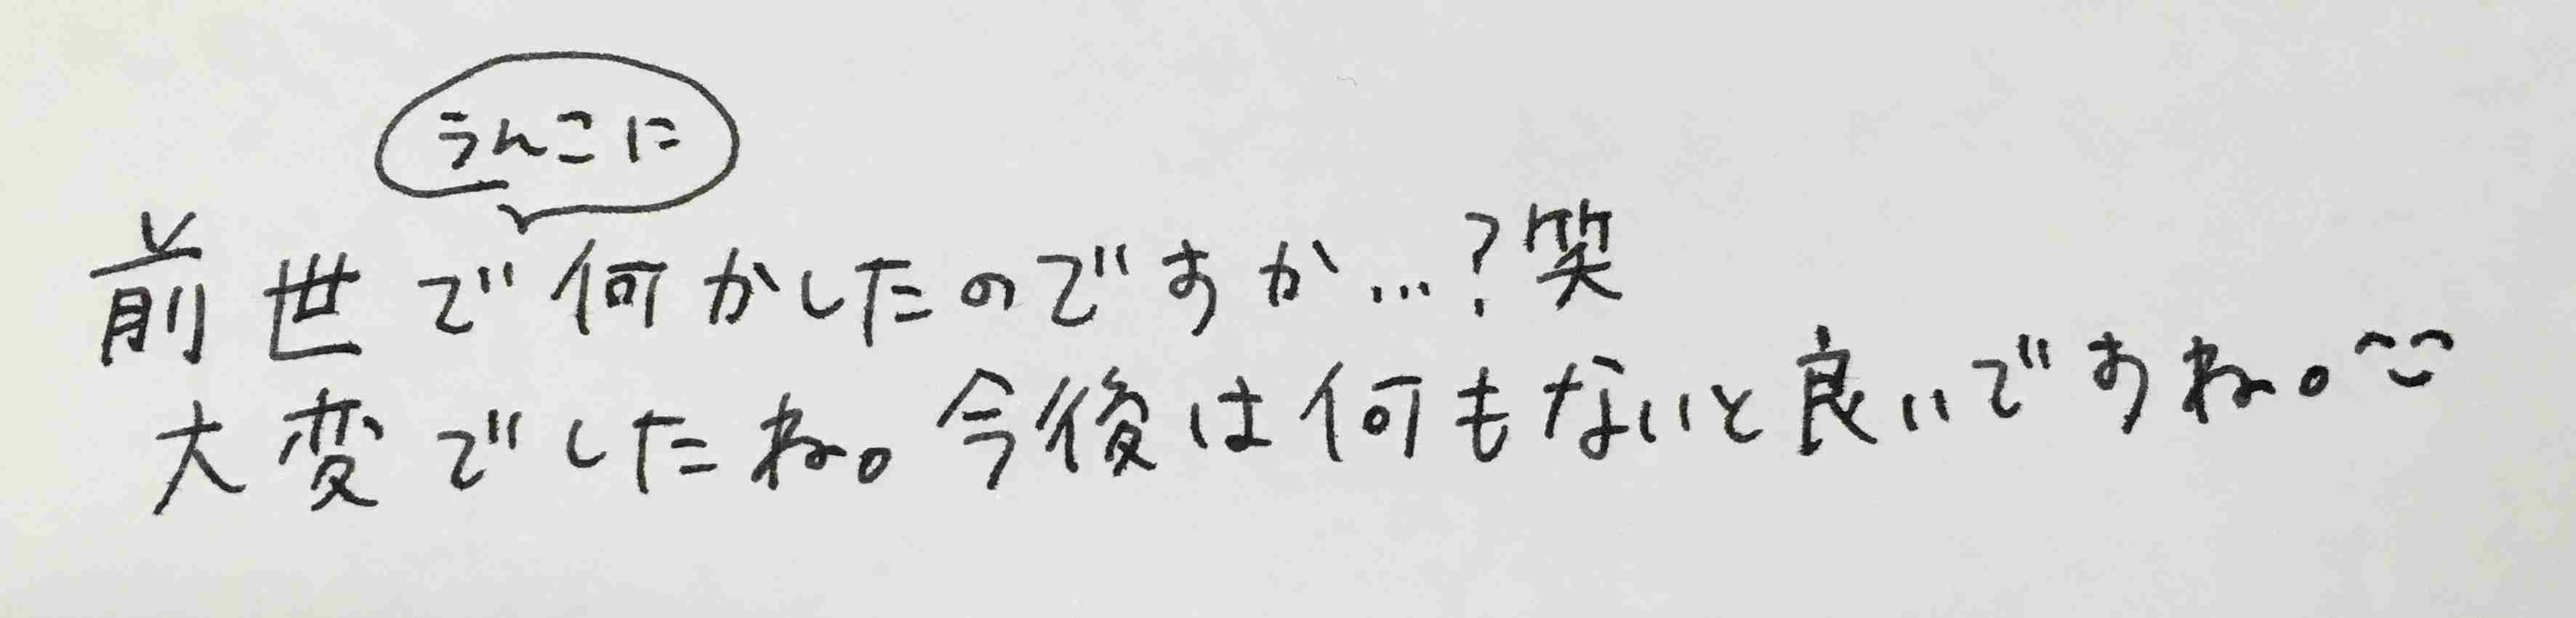 うんこに
前世で何かしたのですか…?笑
大変でしたね。今後は何もないと良いですね。